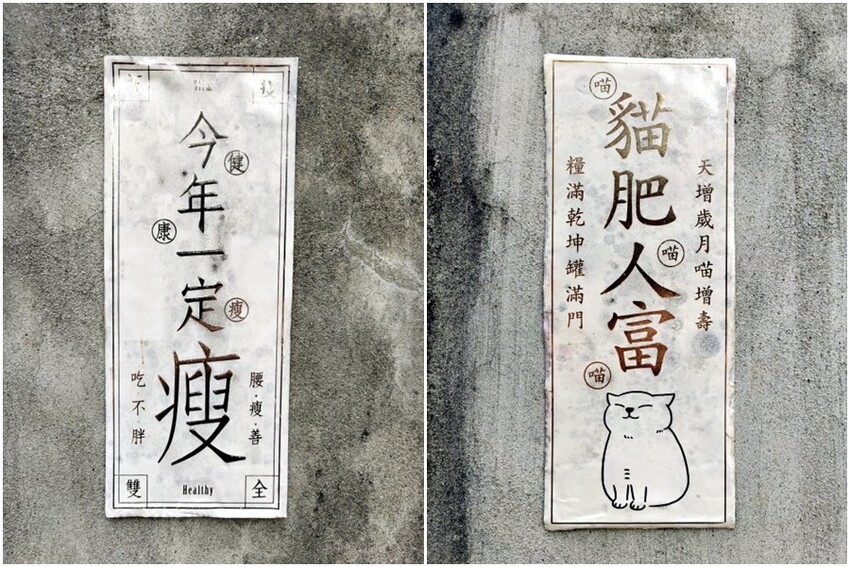 今年一定瘦
健
康
瘦
腰·瘦·善
吃不胖
雙
全
Healthy
貓肥人富
喵
喵
喵
天增歲月喵增壽
糧滿乾坤罐滿門